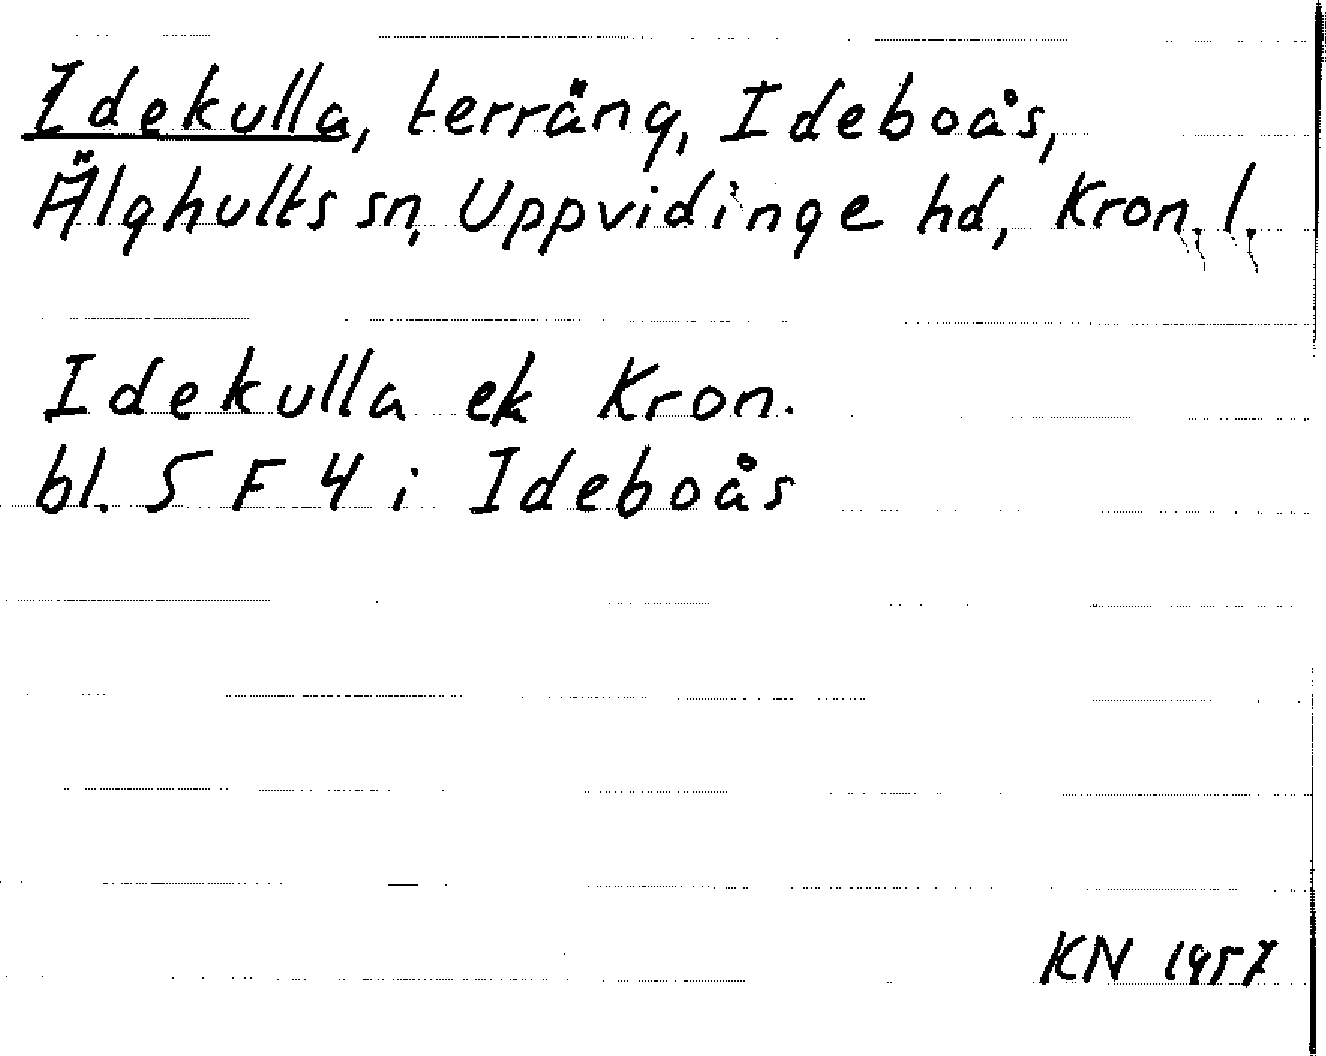 Idekulla, terräng, Ideboås,
Älghults sn, Uppvidinge hd, Kron. l.
Idekulla ek Kron.
bl. 5 F 4 i Ideboås
KN 1957